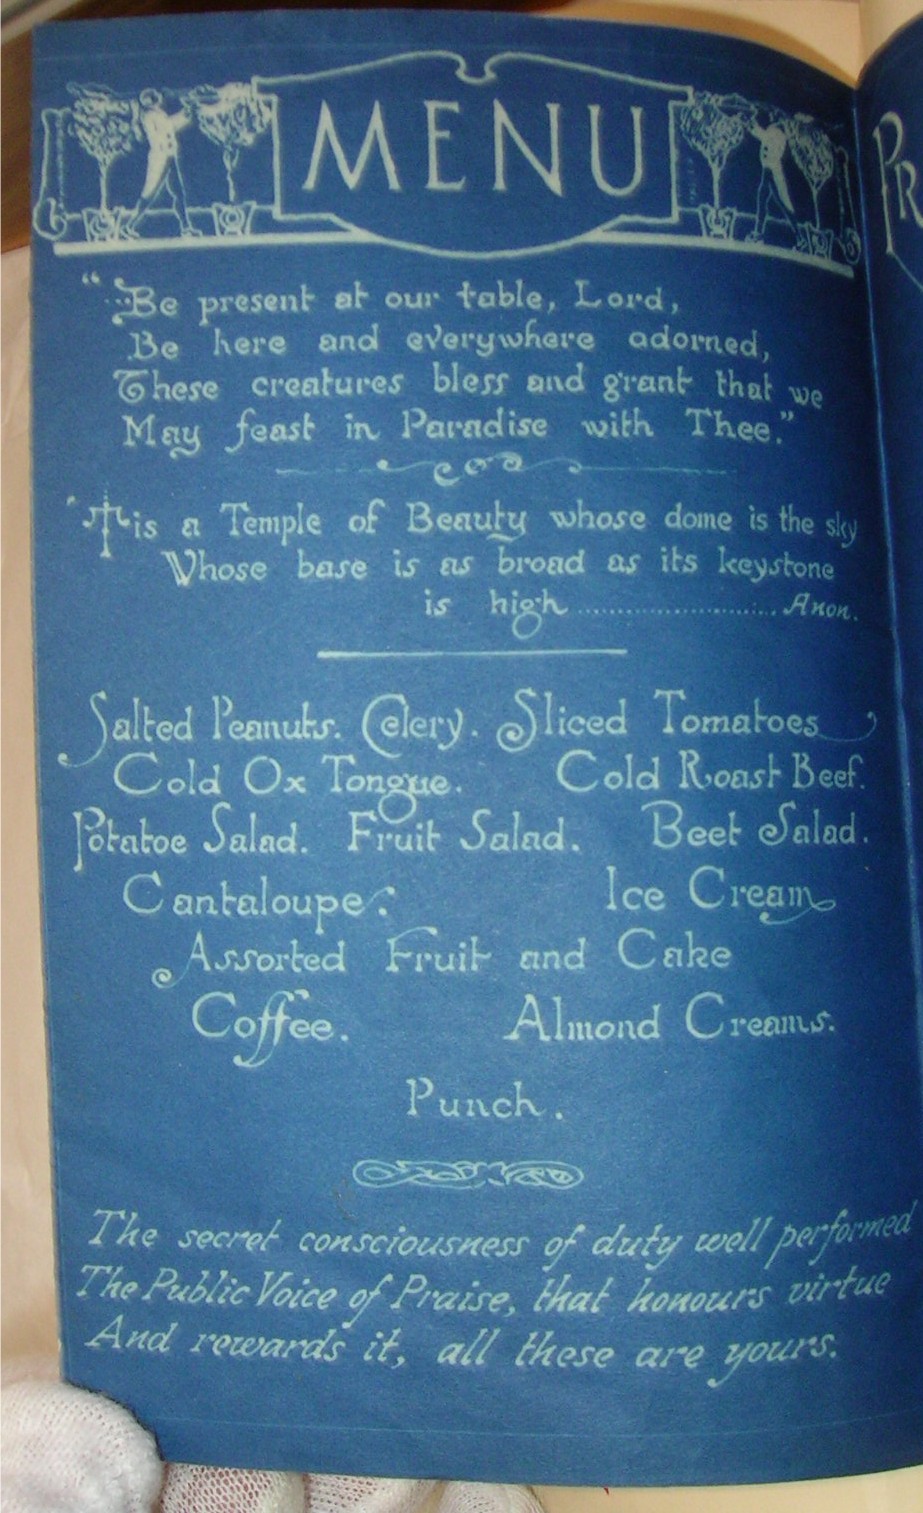 MENU
"Be present at our table, Lord,
Be here and everywhere adorned,
These creatures bless and grant that we
May feast in Paradise with Thee."
'Tis a Temple of Beauty whose dome is the sky
Whose base is as broad as its keystone
is high........................Anon.
Salted Peanuts. Celery. Sliced Tomatoes
Cold Ox Tongue. Cold Roast Beef.
Potatoe Salad. Fruit Salad. Beet Salad.
Cantaloupe: Ice Cream
Assorted Fruit and Cake
Coffee. Almond Creams.
Punch.
The secret consciousness of duty well performed
The Public Voice of Praise, that honours virtue
And rewards it, all these are yours.